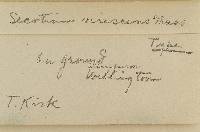 Secotium virescens Mass
Type
on ground
Wellington
T. Kirk